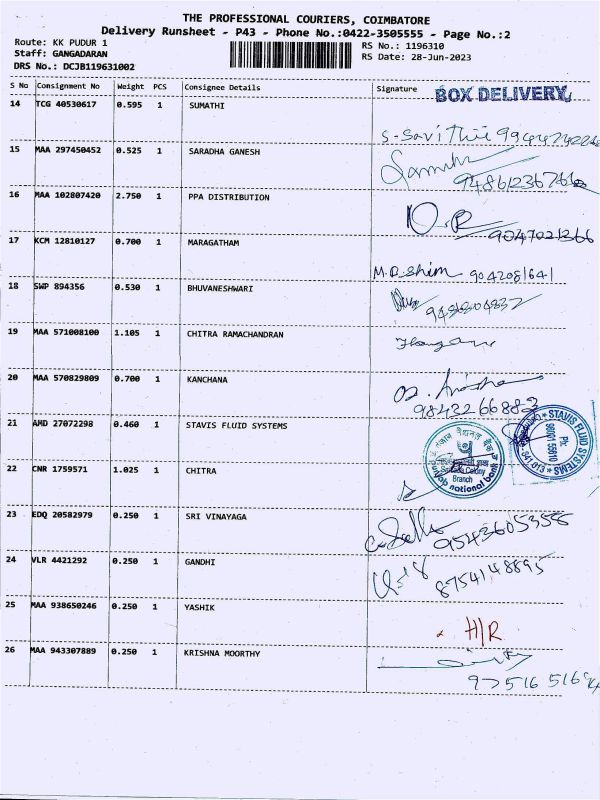 THE PROFESSIONAL COURIERS, COIMBATORE
Delivery Runsheet - P43 - Phone No.:0422-3505555 - Page No.:2
Route: KK PUDUR 1
Staff: GANGADARAN
DRS No.: DCJB119631002
RS No.: 1196310
RS Date: 28-Jun-2023
S No Consignment No Weight PCS Consignee Details Signature
BOX DELIVERY
14 TCG 40530617 0.595 1 SUMATHI
S-Savithri
15 MAA 297450452 0.525 1 SARADHA GANESH
16 MAA 102807420 2.750 1 PPA DISTRIBUTION
9047021366
17 KCM 12810127 0.700 1 MARAGATHAM
9042081641
18 SWP 894356 0.530 1 BHUVANESHWARI
19 MAA 571008100 1.105 1 CHITRA RAMACHANDRAN
20 MAA 570829809 0.700 1 KANCHANA
9843266883
21 AMD 27072298 0.460 1 STAVIS FLUID SYSTEMS
STAVIS FLUID SYSTEMS
Ph:
98001 55810
22 CNR 1759571 1.025 1 CHITRA
Colony
Branch
punjab national bank
23 EDQ 20582979 0.250 1 SRI VINAYAGA
9543605358
24 VLR 4421292 0.250 1 GANDHI
8754148895
25 MAA 938650246 0.250 1 YASHIK
H/R
26 MAA 943307889 0.250 1 KRISHNA MOORTHY